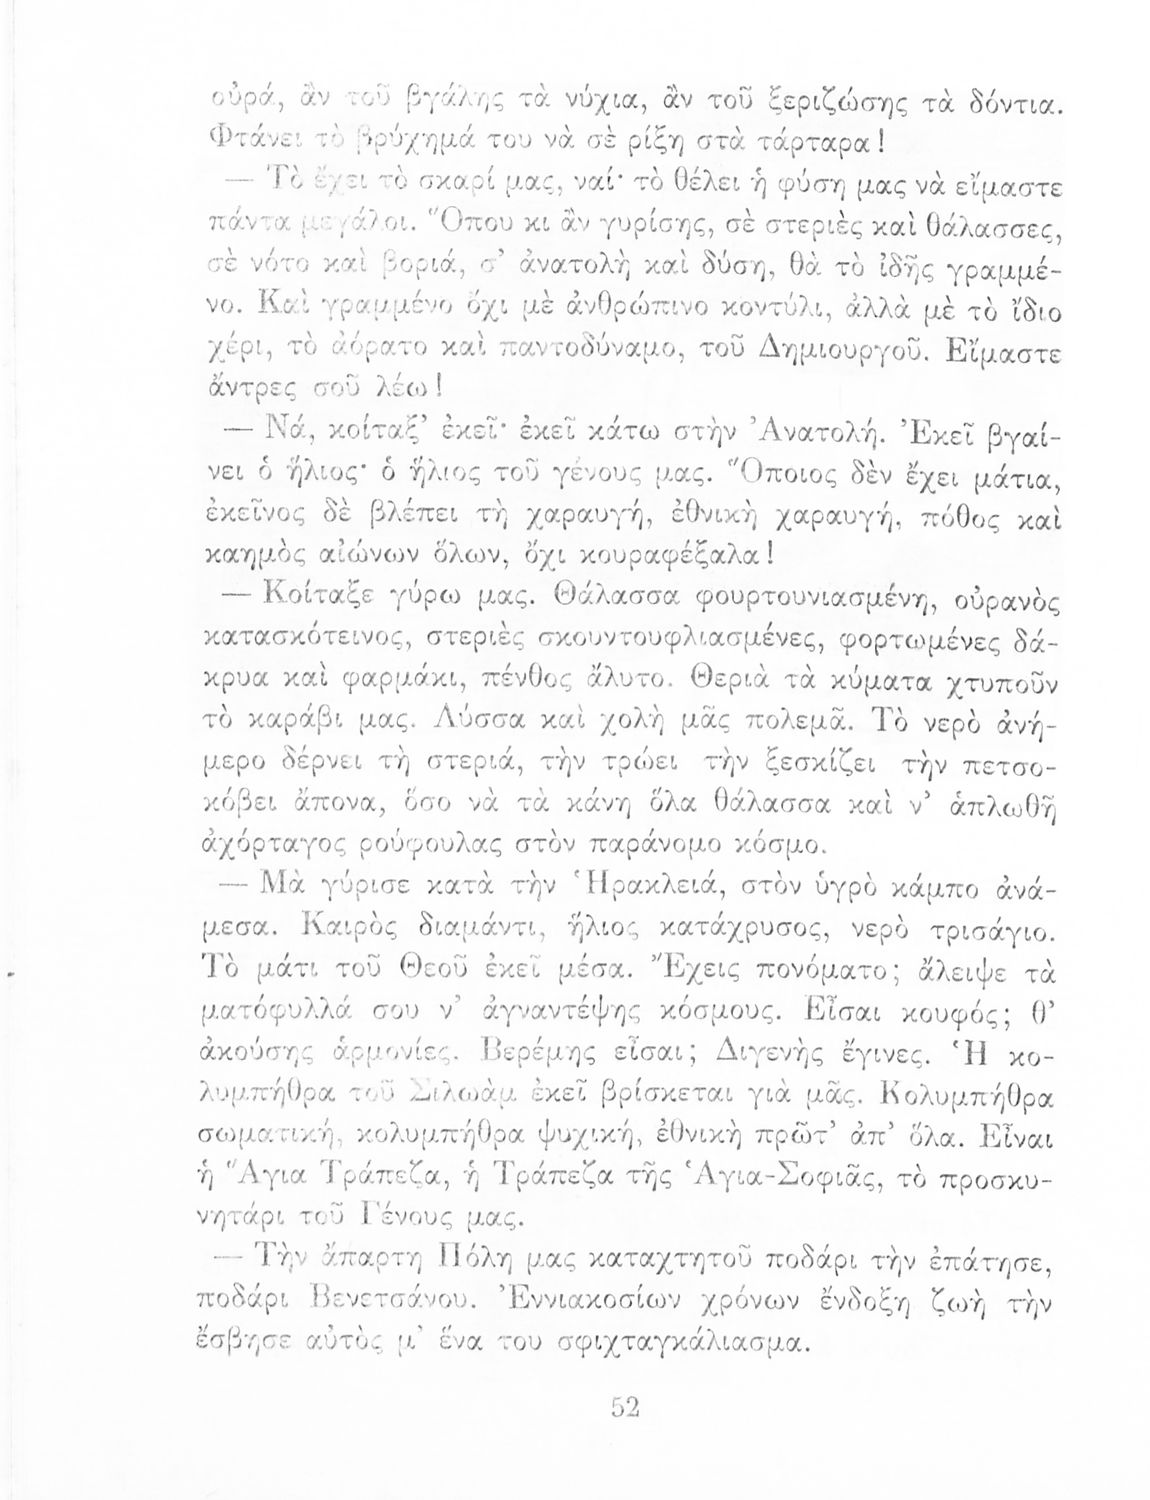 οὐρά, ἂν τοῦ βγάλης τὰ νύχια, ἂν τοῦ ξεριζώσης τὰ δόντια.
Φτάνει τὸ βρύχημά του νὰ σὲ ρίξη στὰ τάρταρα!
— Τὸ ἔχει τὸ σκαρί μας, ναί· τὸ θέλει ἡ φύση μας νὰ εἴμαστε
πάντα μεγάλοι. Ὅπου κι ἂν γυρίσης, σὲ στεριὲς καὶ θάλασσες,
σὲ νότο καὶ βοριά, σ’ ἀνατολὴ καὶ δύση, θὰ τὸ ἰδῆς γραμμέ-
νο. Καὶ γραμμένο ὄχι μὲ ἀνθρώπινο κοντύλι, ἀλλὰ μὲ τὸ ἴδιο
χέρι, τὸ ἀόρατο καὶ παντοδύναμο, τοῦ Δημιουργοῦ. Εἴμαστε
ἄντρες σοῦ λέω!
— Νά, κοίταξ’ ἐκεῖ· ἐκεῖ κάτω στὴν Ἀνατολή. Ἐκεῖ βγαί-
νει ὁ ἥλιος· ὁ ἥλιος τοῦ γένους μας. Ὅποιος δὲν ἔχει μάτια,
ἐκεῖνος δὲ βλέπει τὴ χαραυγή, ἐθνικὴ χαραυγή, πόθος καὶ
καημὸς αἰώνων ὅλων, ὄχι κουραφέξαλα!
— Κοίταξε γύρω μας. Θάλασσα φουρτουνιασμένη, οὐρανὸς
κατασκότεινος, στεριὲς σκουντουφλιασμένες, φορτωμένες δά-
κρυα καὶ φαρμάκι, πένθος ἄλυτο. Θεριὰ τὰ κύματα χτυποῦν
τὸ καράβι μας. Λύσσα καὶ χολὴ μᾶς πολεμᾶ. Τὸ νερὸ ἀνή-
μερο δέρνει τὴ στεριά, τὴν τρώει τὴν ξεσκίζει τὴν πετσο-
κόβει ἄπονα, ὅσο νὰ τὰ κάνη ὅλα θάλασσα καὶ ν’ ἁπλωθῆ
ἀχόρταγος ρούφουλας στὸν παράνομο κόσμο.
— Μὰ γύρισε κατὰ τὴν Ἡρακλειά, στὸν ὑγρὸ κάμπο ἀνά-
μεσα. Καιρὸς διαμάντι, ἥλιος κατάχρυσος, νερὸ τρισάγιο.
Τὸ μάτι τοῦ Θεοῦ ἐκεῖ μέσα. Ἔχεις πονόματο; ἄλειψε τὰ
ματόφυλλά σου ν’ ἀγναντέψης κόσμους. Εἶσαι κουφός; θ’
ἀκούσης ἁρμονίες. Βερέμης εἶσαι; Διγενὴς ἔγινες. Ἡ κο-
λυμπήθρα τοῦ Σιλωὰμ ἐκεῖ βρίσκεται γιὰ μᾶς. Κολυμπήθρα
σωματική, κολυμπήθρα ψυχική, ἐθνικὴ πρῶτ’ ἀπ’ ὅλα. Εἶναι
ἡ Ἅγια Τράπεζα, ἡ Τράπεζα τῆς Ἁγια-Σοφιᾶς, τὸ προσκυ-
νητάρι τοῦ Γένους μας.
— Τὴν ἄπαρτη Πόλη μας καταχτητοῦ ποδάρι τὴν ἐπάτησε,
ποδάρι Βενετσάνου. Ἐννιακοσίων χρόνων ἔνδοξη ζωὴ τὴν
ἔσβησε αὐτὸς μ’ ἕνα του σφιχταγκάλιασμα.
52